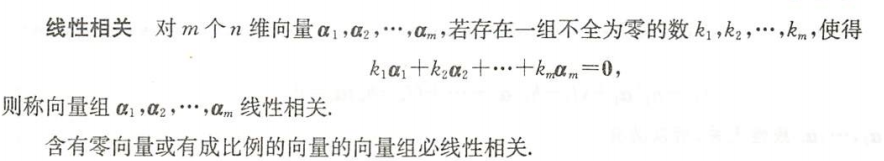 线性相关 对 m 个 n 维向量 α₁,α₂,⋯,αₘ,若存在一组不全为零的数 k₁,k₂,⋯,kₘ,使得
k₁α₁+k₂α₂+⋯+kₘαₘ=0,
则称向量组 α₁,α₂,⋯,αₘ 线性相关.
含有零向量或有成比例的向量的向量组必线性相关.